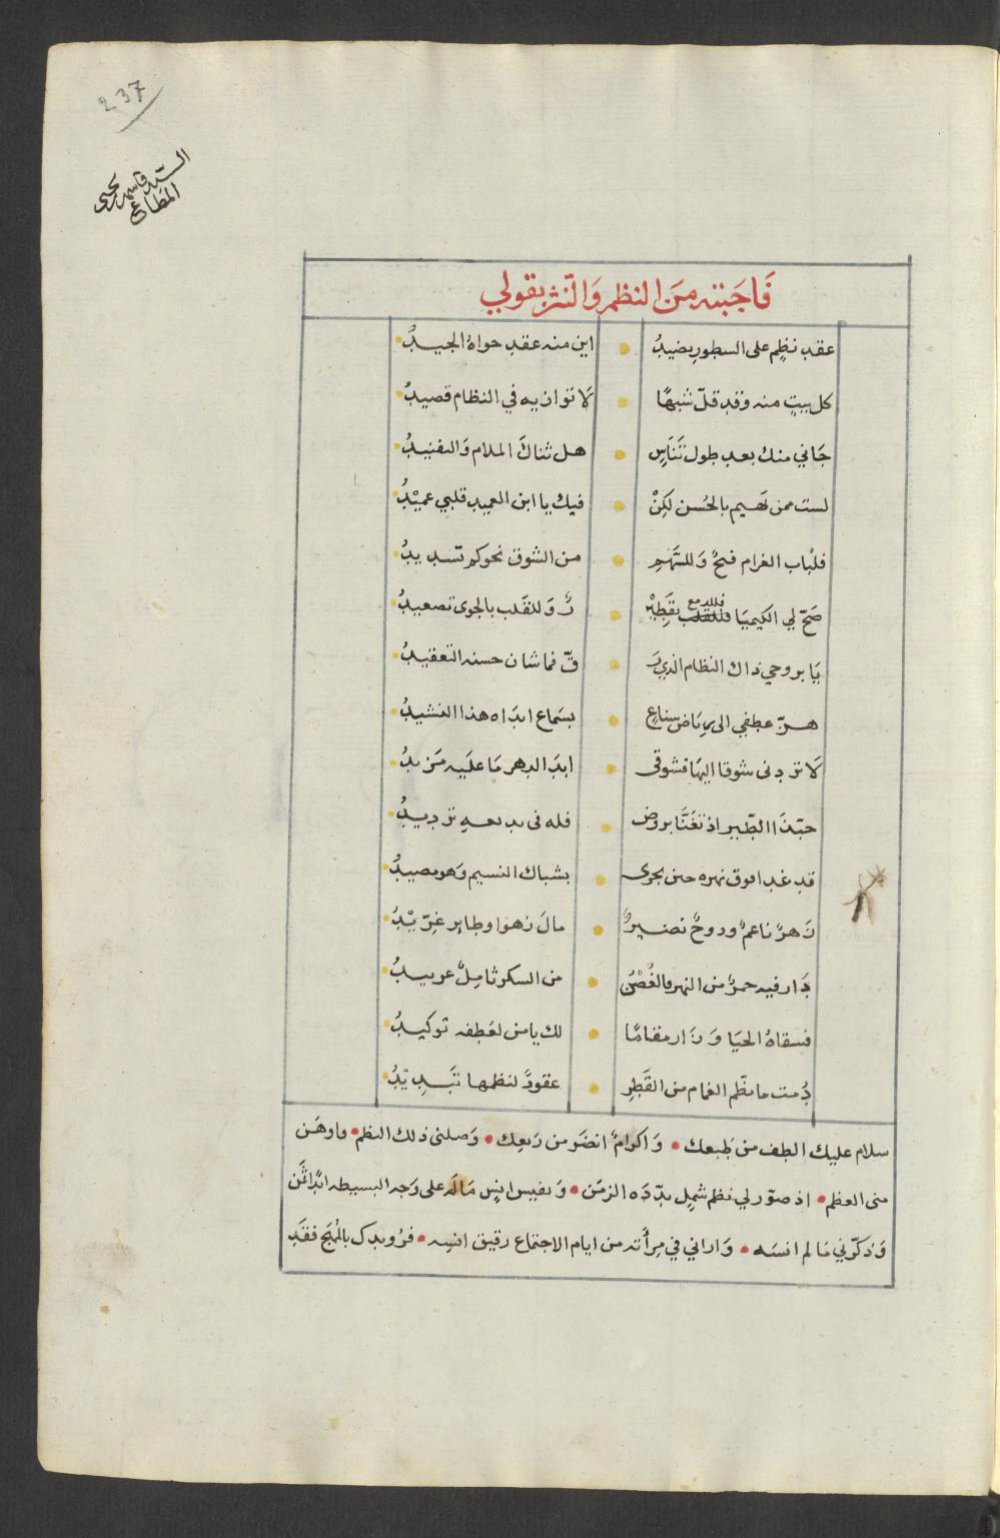 237
السيد قاسم بن يحيى
المطاع
فَاجَبتہ مِنَ النظمِ وَالنّثرِ بقولي
عقد نظمٍ على السطورِ نضيدُ • اين منہ عقد حواهُ الجيــدُ
كل بيتٍ منہ وقد قلّ شبهًا • لا توازيہ في النظام قصيدُ
جَاني منك بعد طول تَنَاسٍ • هل ثناكَ الملام وَالتفنيدُ
لست ممن يَهيم بالحُسن لكِنْ • فيك يا ابن العميد قلبي عميْدُ
فلباب الغرام فتحٌ وَللسَّهمِ • من الشوق نحوكم تسديدُ
صَحّ لي الكيميَا فللدمع تقَطِيْ • رٌ وَللقَلب بالجوى تصعيدُ
يَا بروحي ذاك النظام الذي رَ • قّ فما شان حسنہ التعقيدُ
هــزّ عطفي الى رياض سناعٍ • بسَماع ابدَاه هذا النشيدُ
لا تزدنى شوقا اليهَا فشوقى • ابدَ الدهر مَا علَيہ مَزيدُ
حبّذَا الطّير اذ تغَنَّا بروض • فله فى تردىد
قد غدا فوق نهره حىن يجرى • بشباك النسيم وَهو مصيدُ
زَهرٌ ناعمٌ ودوحٌ نضيرٌ • مالَ زهوا وطاير غِرّيْدُ
دَار فيہ خمرٌ من النهر فالغُصْنُ • من السكر ثامِلٌ عربيدُ
فسقاهُ الحيَا وَزَار مقامًا • لك يا من لعَطفہ توكيدُ
دُمت ما نظّم الغمام من القَطرِ • عقودً لنظمها تَبَديْدُ
سلام عليك الطف من طبعك • وَاكرامٌ انضَو من رَبعِك • وَصلنى ذلك النظم • واوهَن
منى العظم • اذ صوّر لي نظم شملٍ بدّدَه الزمَن • وَنفيس انسٍ مَالَه على وَجہ البسيطہ ابدًا ثمَن
وَذكّرني مَا لم انسَہ • وَاراني في مِرأتہ من ايام الاجتماع رقيق انسہ • فرُويدك بالمُهَج فقَد